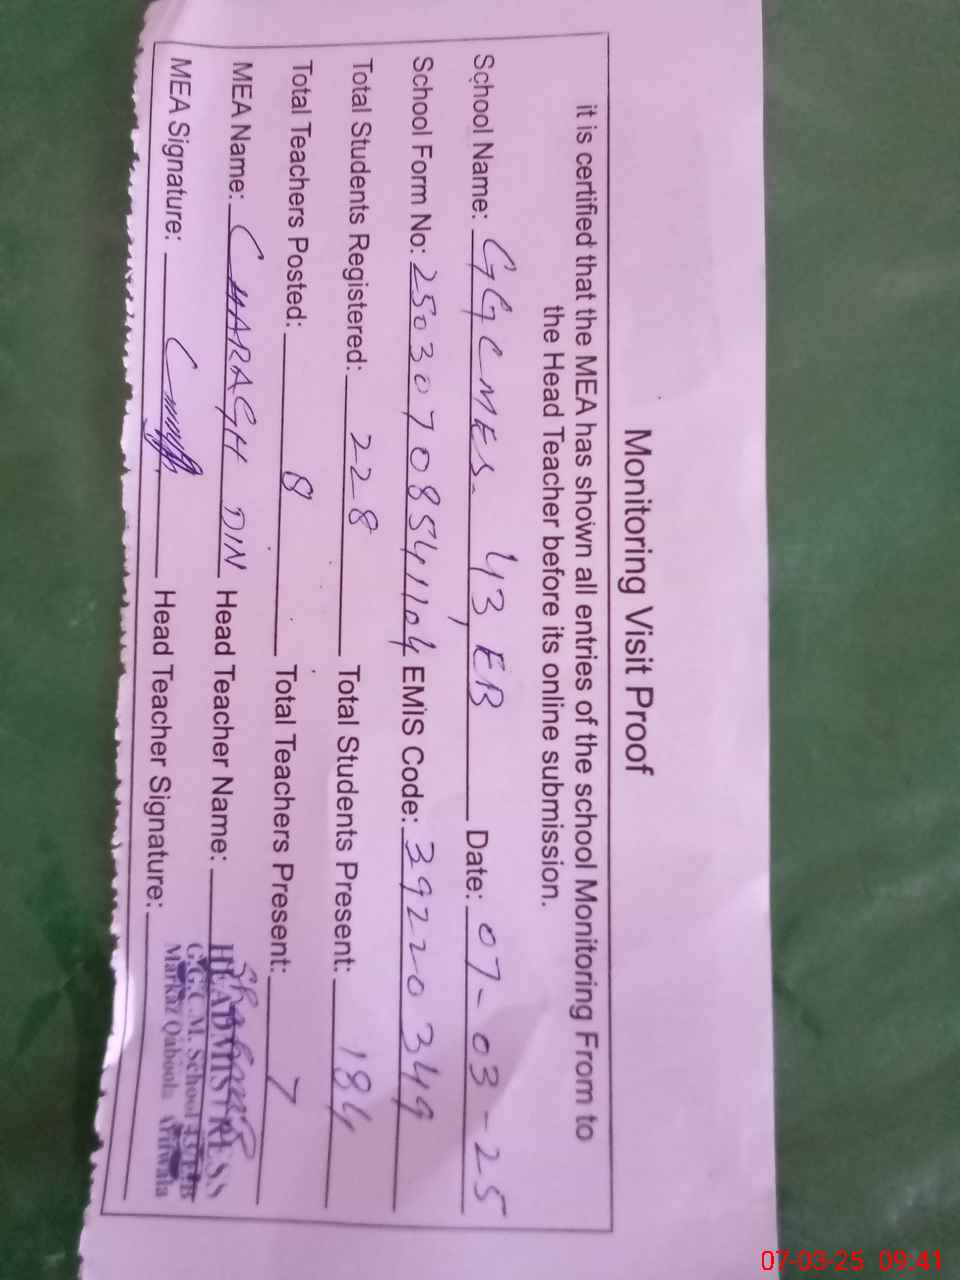 Monitoring Visit Proof
it is certified that the MEA has shown all entries of the school Monitoring From to
the Head Teacher before its online submission.
School Name: GGCMES. 43, EB Date: 07-03-25
School Form No: 25030708541104 EMIS Code: 39220349
Total Students Registered: 228 Total Students Present: 184
Total Teachers Posted: 8 Total Teachers Present: 7
MEA Name: CHARAGH DIN Head Teacher Name:
HEADMISTRESS
G.G.C.M. School 43/EB
Markaz Qaboola Arifwala
MEA Signature: Head Teacher Signature:
07-03-25 09:41